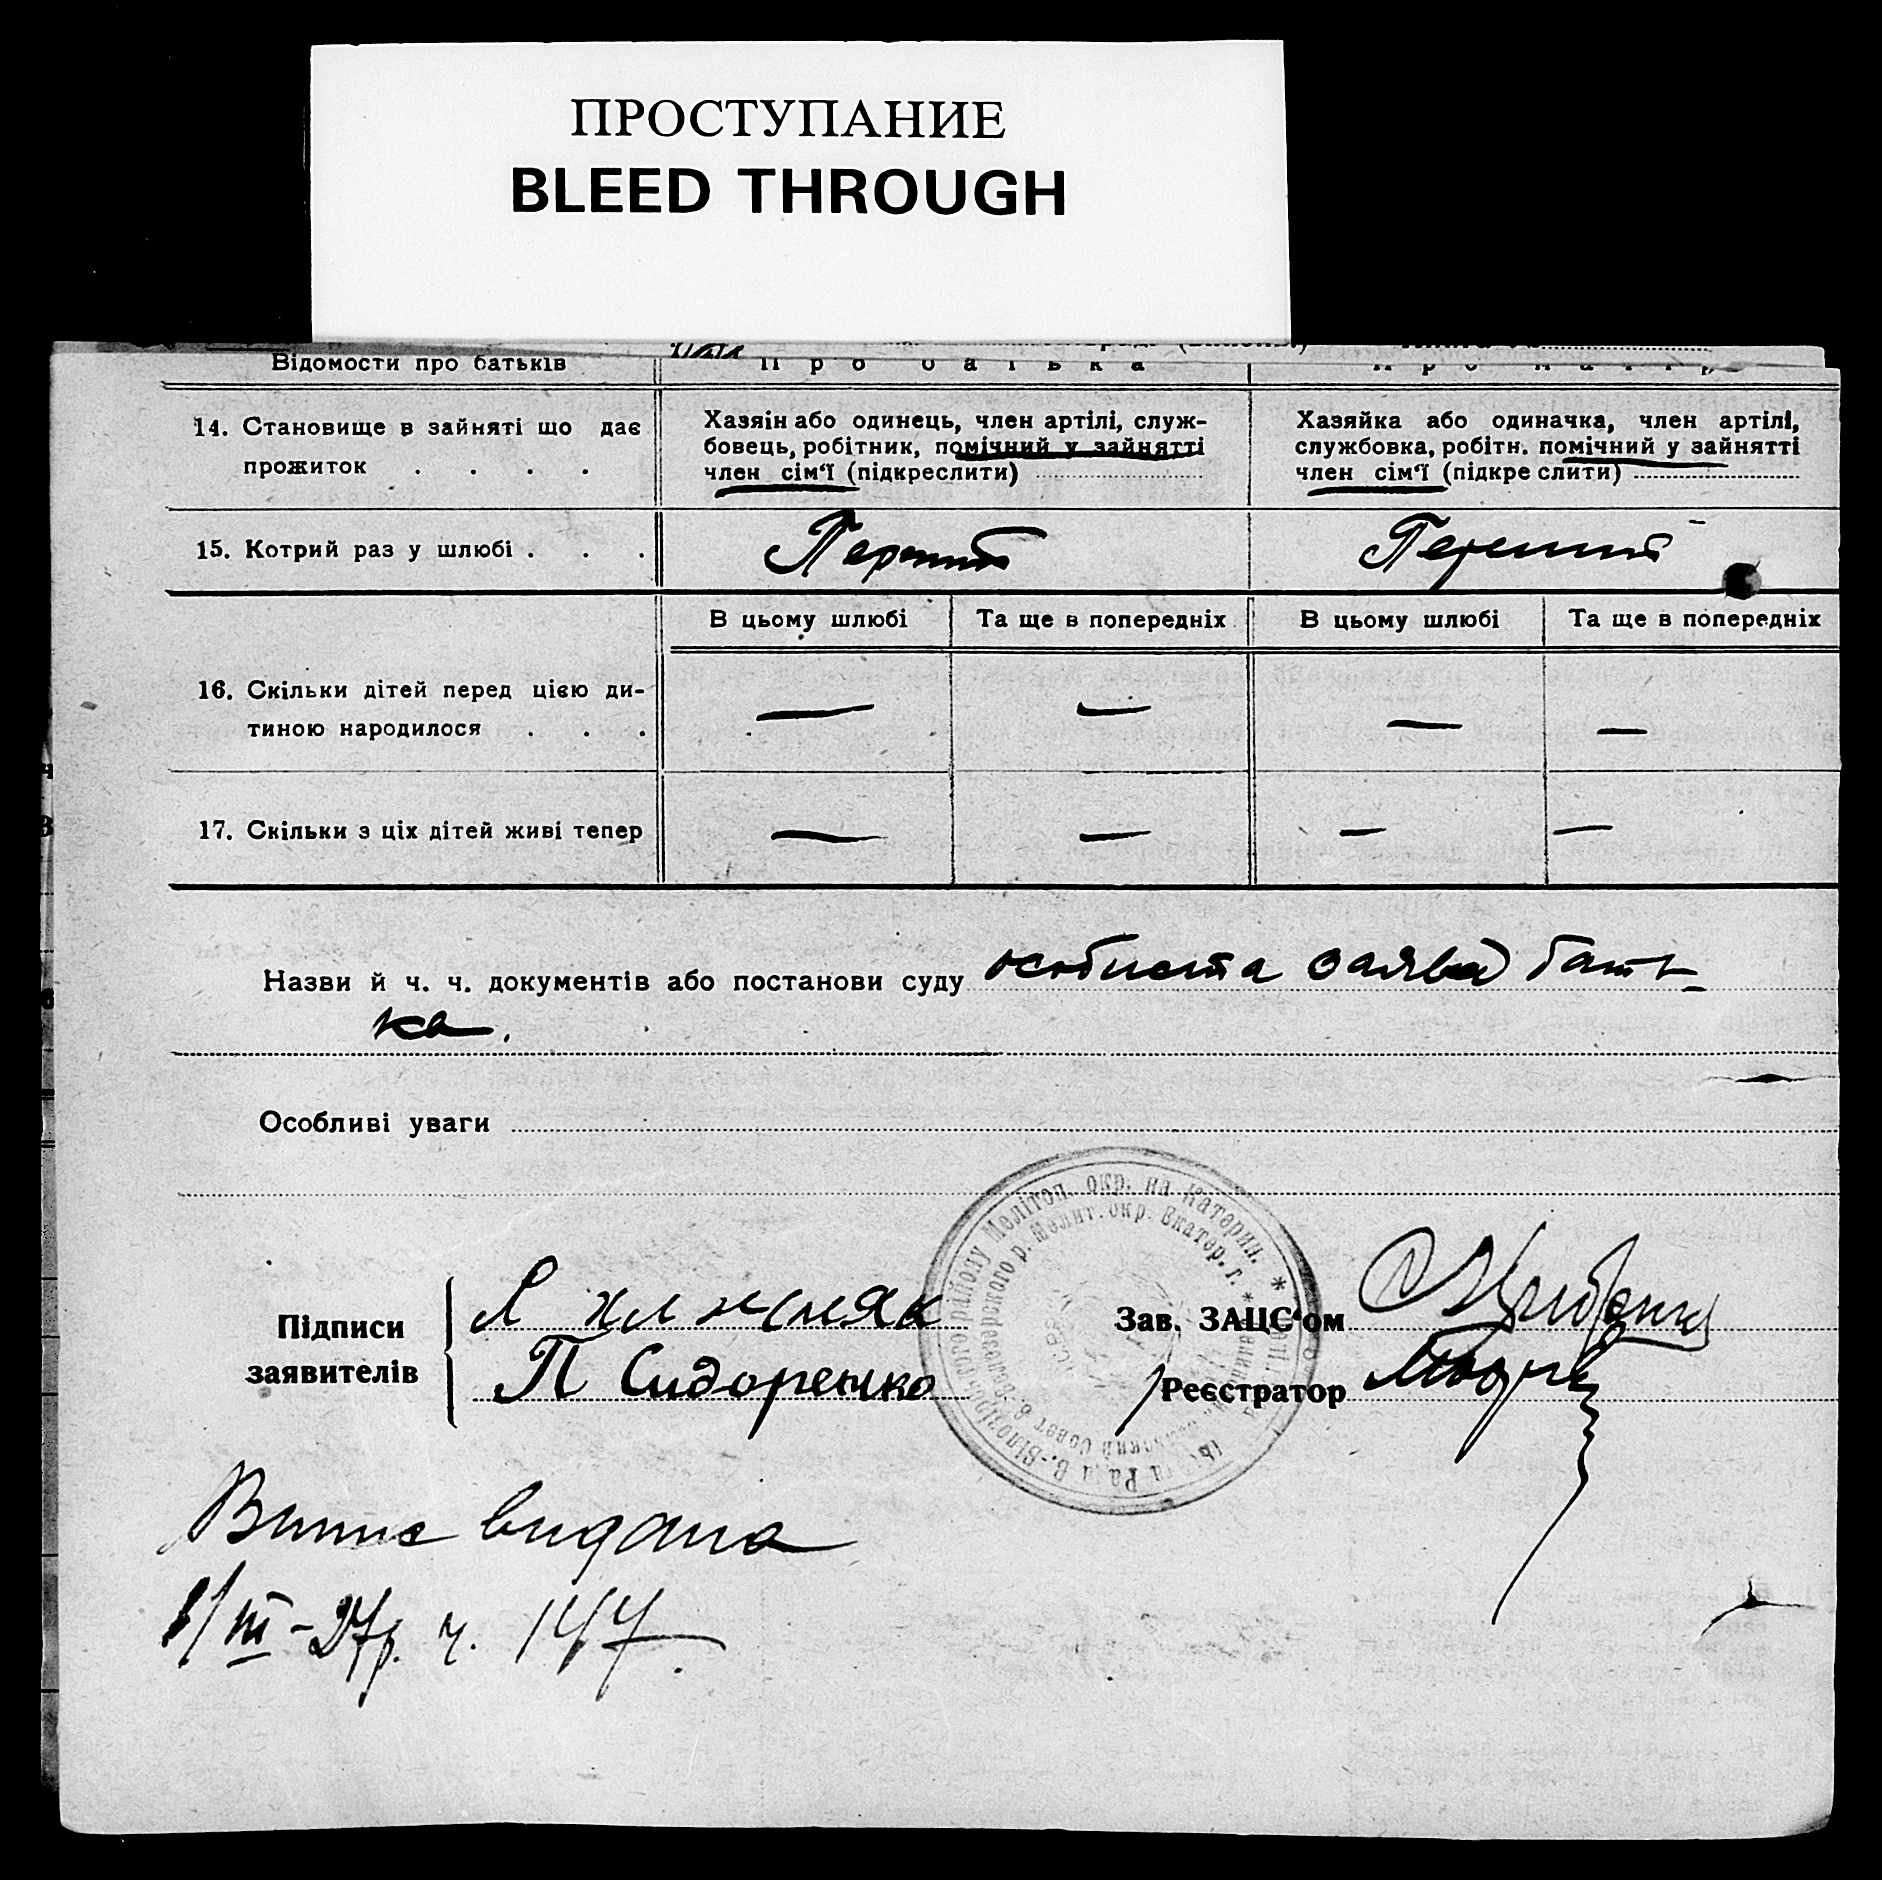 ПРОСТУПАНИЕ
BLEED THROUGH
Відомости про батьків
Про батька
Про матір
14. Становище в зайняті що дає
прожиток . . . .
Хазяін або одинець, член артілі, служ-
бовець, робітник, помічний у зайнятті
член сім'ї (підкреслити)
Хазяйка або одиначка, член артілі,
службовка, робітн. помічний у зайнятті
член сім'ї (підкре слити)
15. Котрий раз у шлюбі . . .
Перший
Перший
В цьому шлюбі
Та ще в попередніх
В цьому шлюбі
Та ще в попередніх
16. Скільки дітей перед цією ди-
тиною народилося . . .
— — — —
17. Скільки з ціх дітей живі тепер
— — — —
Назви й ч. ч. документів або постанови суду особиста заява бать-
ка.
Особливі уваги
Підписи
заявителів
П Сидоренко
Зав. ЗАЦС'ом
Реєстратор
району Мелітоп. окр. на Катерин.
р. Мелит. окр. Екатер. г.
Випис видана
1/III–27р. ч. 147.